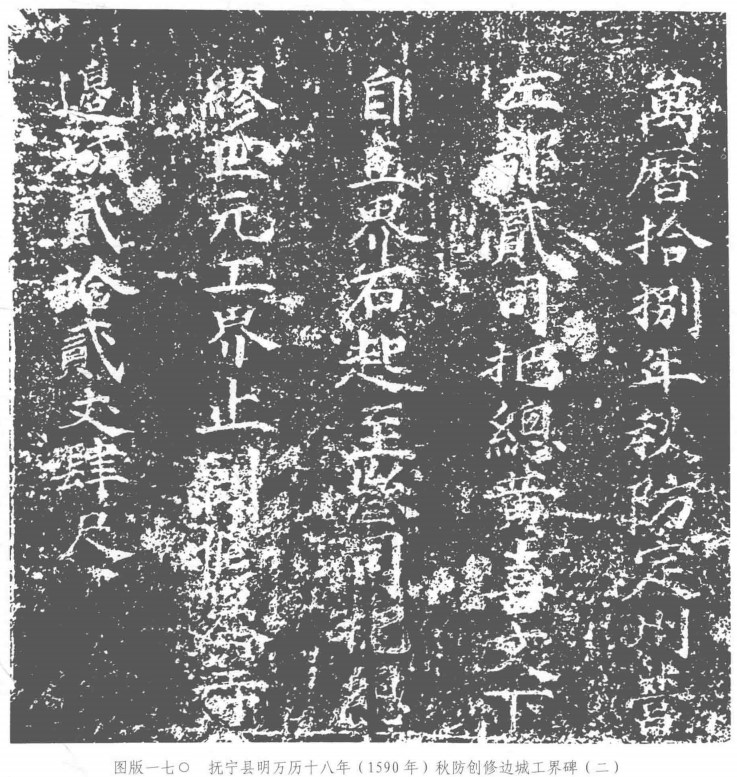 萬曆拾捌年秋防定州營
左部貳司把總黃喜文下
自立界石起至叁司把總
繆世元工界止創修叁等
邊城貳拾貳丈肆尺
图版一七〇 抚宁县明万历十八年（1590年）秋防创修边城工界碑（二）